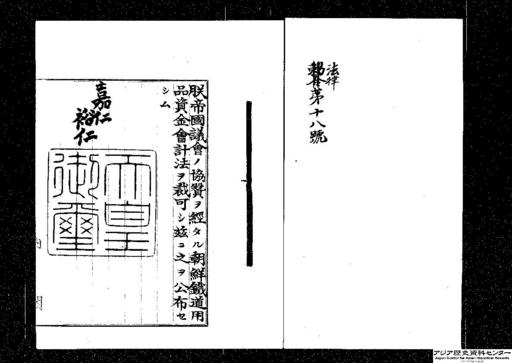 法律
勅令第十八號
朕帝國議會ノ協贊ヲ經タル朝鮮鐵道用
品資金會計法ヲ裁可シ玆ニ之ヲ公布セ
シム
嘉仁
裕仁
天皇
御璽
内
閣
アジア歴史資料センター
Japan Center for Asian Historical Records